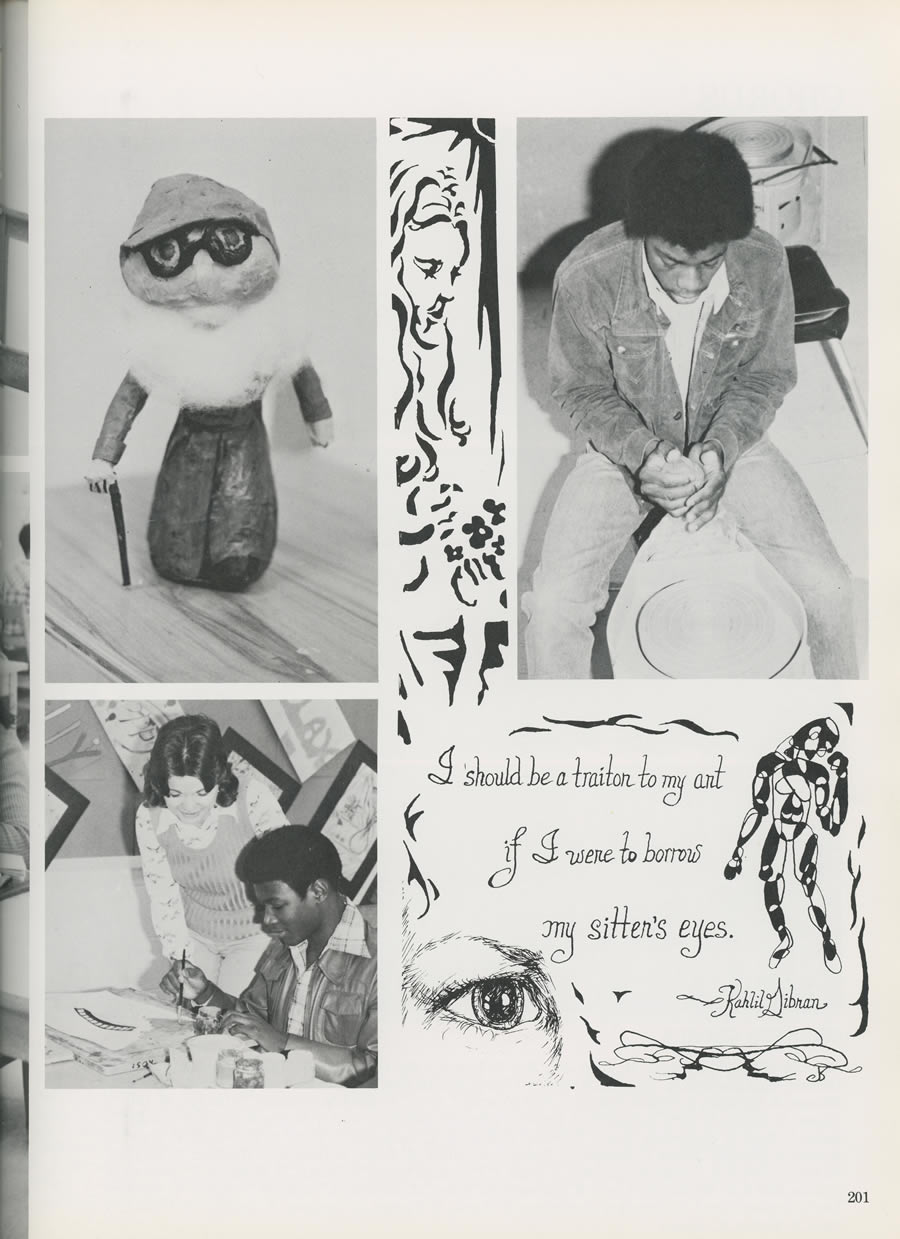 I should be a traitor to my art
if I were to borrow
my sitter's eyes.
Kahlil Gibran
201